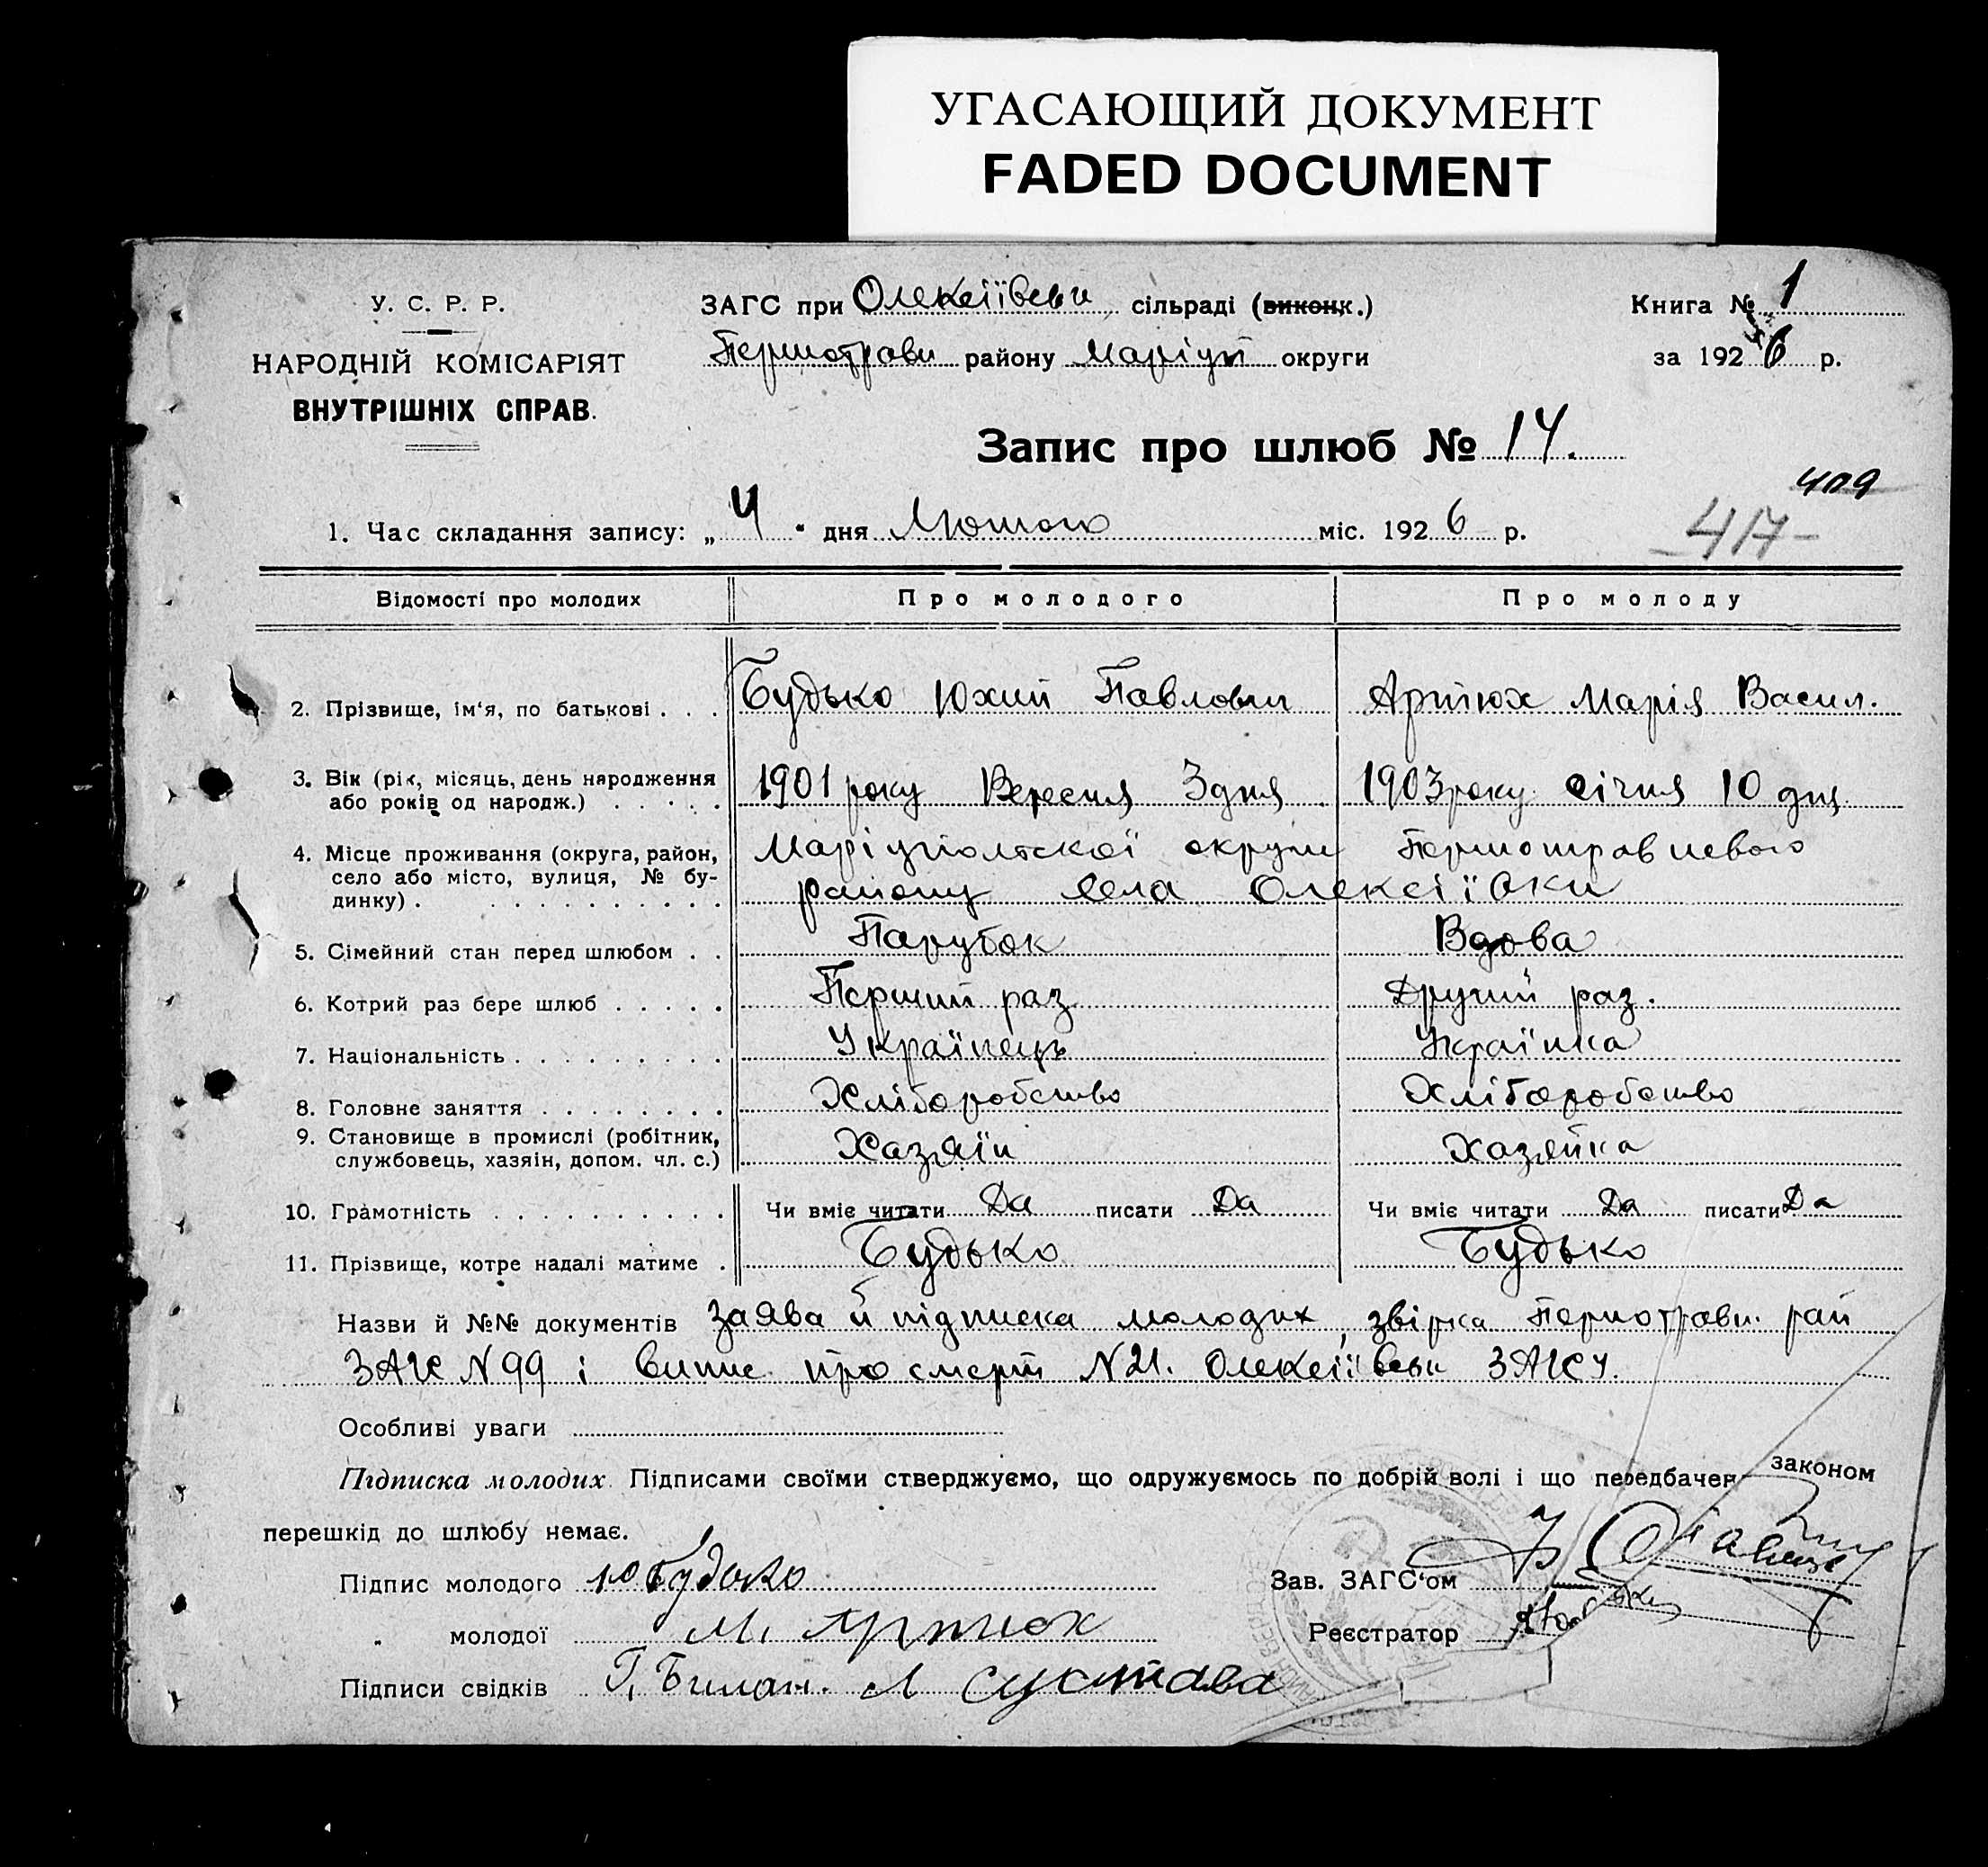 УГАСАЮЩИЙ ДОКУМЕНТ
FADED DOCUMENT
У. С. Р. Р.
НАРОДНІЙ КОМІСАРІЯТ
ВНУТРІШНІХ СПРАВ.
ЗАГС при Олексіївськ сільраді (виконк.)
Першотравн району Маріуп округи
Книга № 1
за 1926 р.
Запис про шлюб № 14.
409
417
1. Час складання запису: „4" дня Лютого міс. 1926 р.
Відомості про молодих Про молодого Про молоду
2. Прізвище, ім'я, по батькові . . . Будько Юхим Павлович Артюх Марія Васил.
3. Вік (рік, місяць, день народження
або років од народж.) . . . . . 1901 року Вересня 3 дня 1903 року січня 10 дня
4. Місце проживання (округа, район, Маріупольської округи Першотравневого
село або місто, вулиця, № бу- району села Олексіївки
динку) . . . . . . . . . . .
5. Сімейний стан перед шлюбом . . Парубок Вдова
6. Котрий раз бере шлюб . . . . . Перший раз Другий раз.
7. Національність . . . . . . . . . Українець Українка
8. Головне заняття . . . . . . . . Хліборобство Хліборобство
9. Становище в промислі (робітник,
службовець, хазяін, допом. чл. с.) Хазяїн Хазяйка
10. Грамотність . . . . . . . . . . Чи вміє читати Да писати Да Чи вміє читати Да писати Да
11. Прізвище, котре надалі матиме . Будько Будько
Назви й №№ документів заява й підписка молодих, звірка Першотравн. рай
ЗАГС N 99 і випис про смерт N 21. Олексіївськ ЗАГСу.
Особливі уваги
Підписка молодих. Підписами своїми стверджуємо, що одружуємось по добрій волі і що передбачен законом
перешкід до шлюбу немає.
Підпис молодого Ю Будько
Зав. ЗАГС'ом
„ молодої М. Артюх
Реєстратор
Підписи свідків Г. Билан. Л Сустава